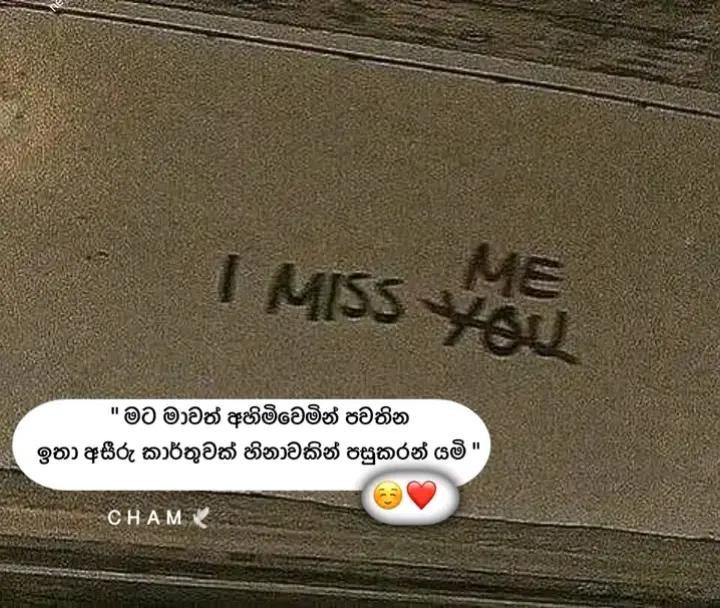 I MISS YOU
ME
" මට මාවත් අහිමිවෙමින් පවතින
ඉතා අසීරු කාර්තුවක් හිනාවකින් පසුකරන් යමි "
☺️❤️
CHAM🕊